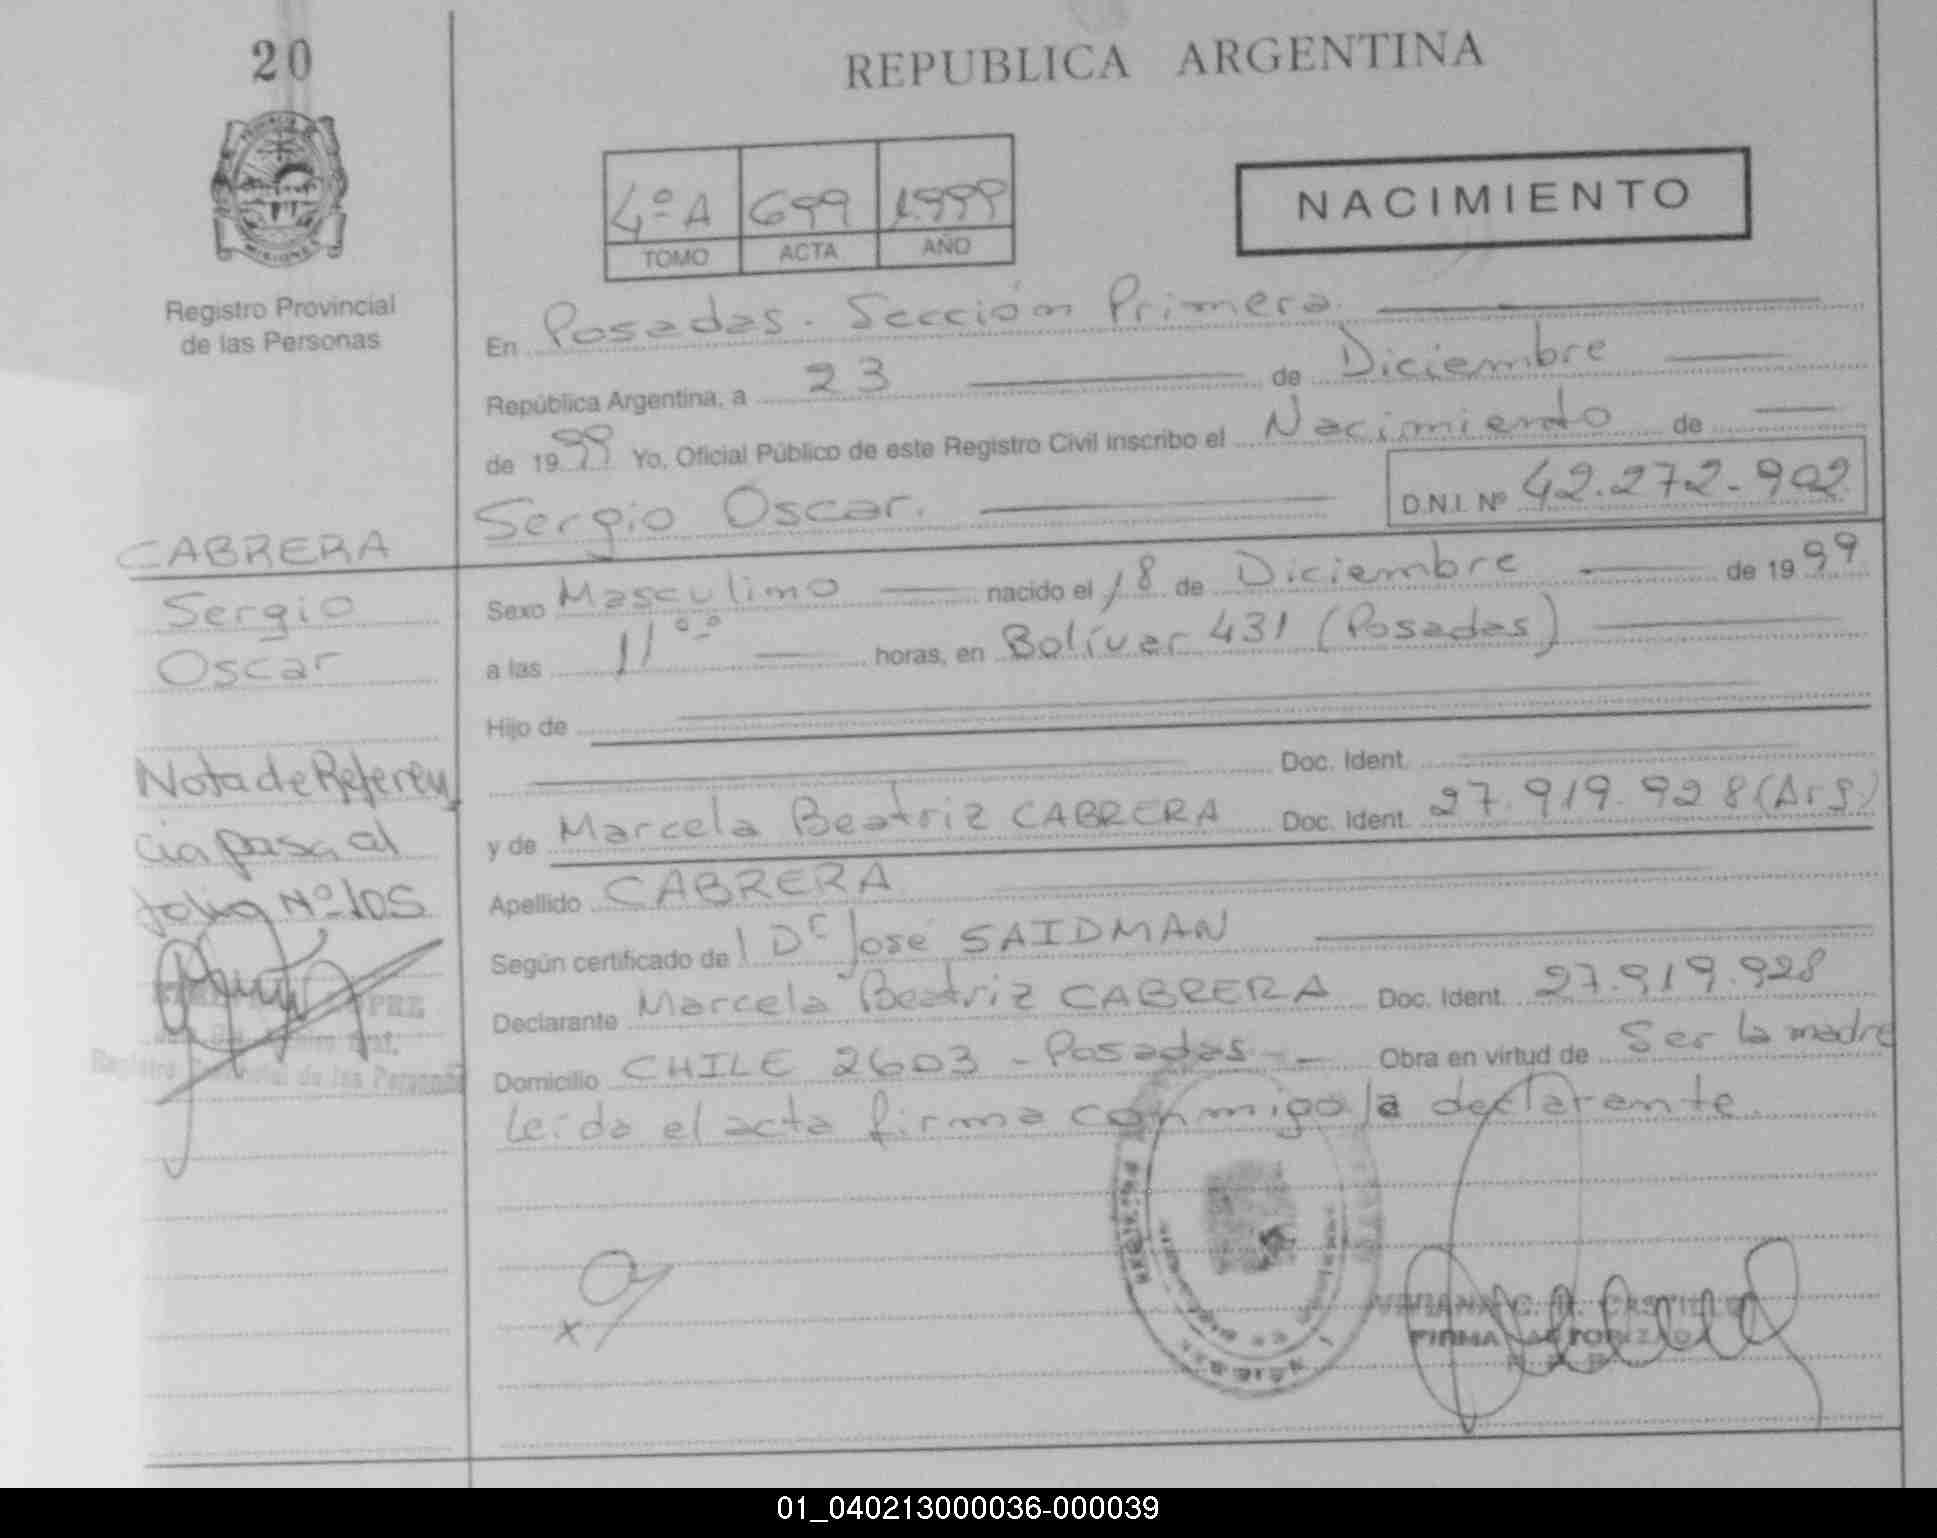 20
REPUBLICA ARGENTINA
4º A 699 1999
TOMO ACTA AÑO
NACIMIENTO
Registro Provincial
de las Personas
En Posadas. Sección Primera.
República Argentina, a 23 de Diciembre
de 1999 Yo, Oficial Público de este Registro Civil inscribo el Nacimiento de
Sergio Oscar. D.N.I. Nº 42.272.902
CABRERA
Sergio
Oscar
Sexo Masculino nacido el 18 de Diciembre de 1999
a las 11 ºº horas, en Bolívar 431 (Posadas)
Hijo de
Doc. Ident.
y de Marcela Beatriz CABRERA Doc. Ident. 27.919.928 (Arg)
Apellido CABRERA
Según certificado de l Dr José SAIDMAN
Declarante Marcela Beatriz CABRERA Doc. Ident. 27.919.928
Domicilio CHILE 2603 - Posadas - Obra en virtud de Ser la madre
Leída el acta firma conmigo la declarante
Nota de Referen
cia pasa al
folio Nº 105
Registro Provincial de las Personas
x
FIRMA AUTORIZADA
01_040213000036-000039